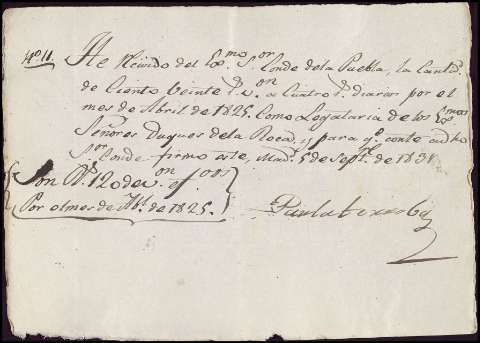 Nº 11. He Rēcivido del Exmo Sor Conde dela Puebla, la Cantd.
de Ciento Veinte rs. von a Cuatro rs. diarios por el
mes de Abril de 1825. Como Legataria de los Exmos
Señores Duques dela Roca, y para qe conste a dho
Sor Conde firmo este, Madd 5 de Septe. de 1831
Son Rs. 120 de von efvos
Por el mes de Abl. de 1825.
Paula